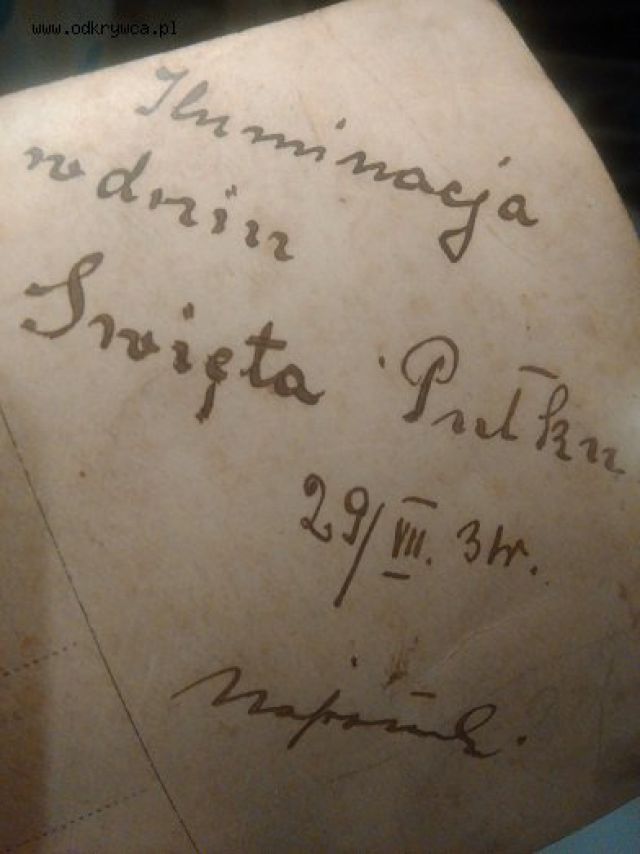 www.odkrywca.pl
Iluminacja
w dniu
Święta Pułku
29/VII. 31r.